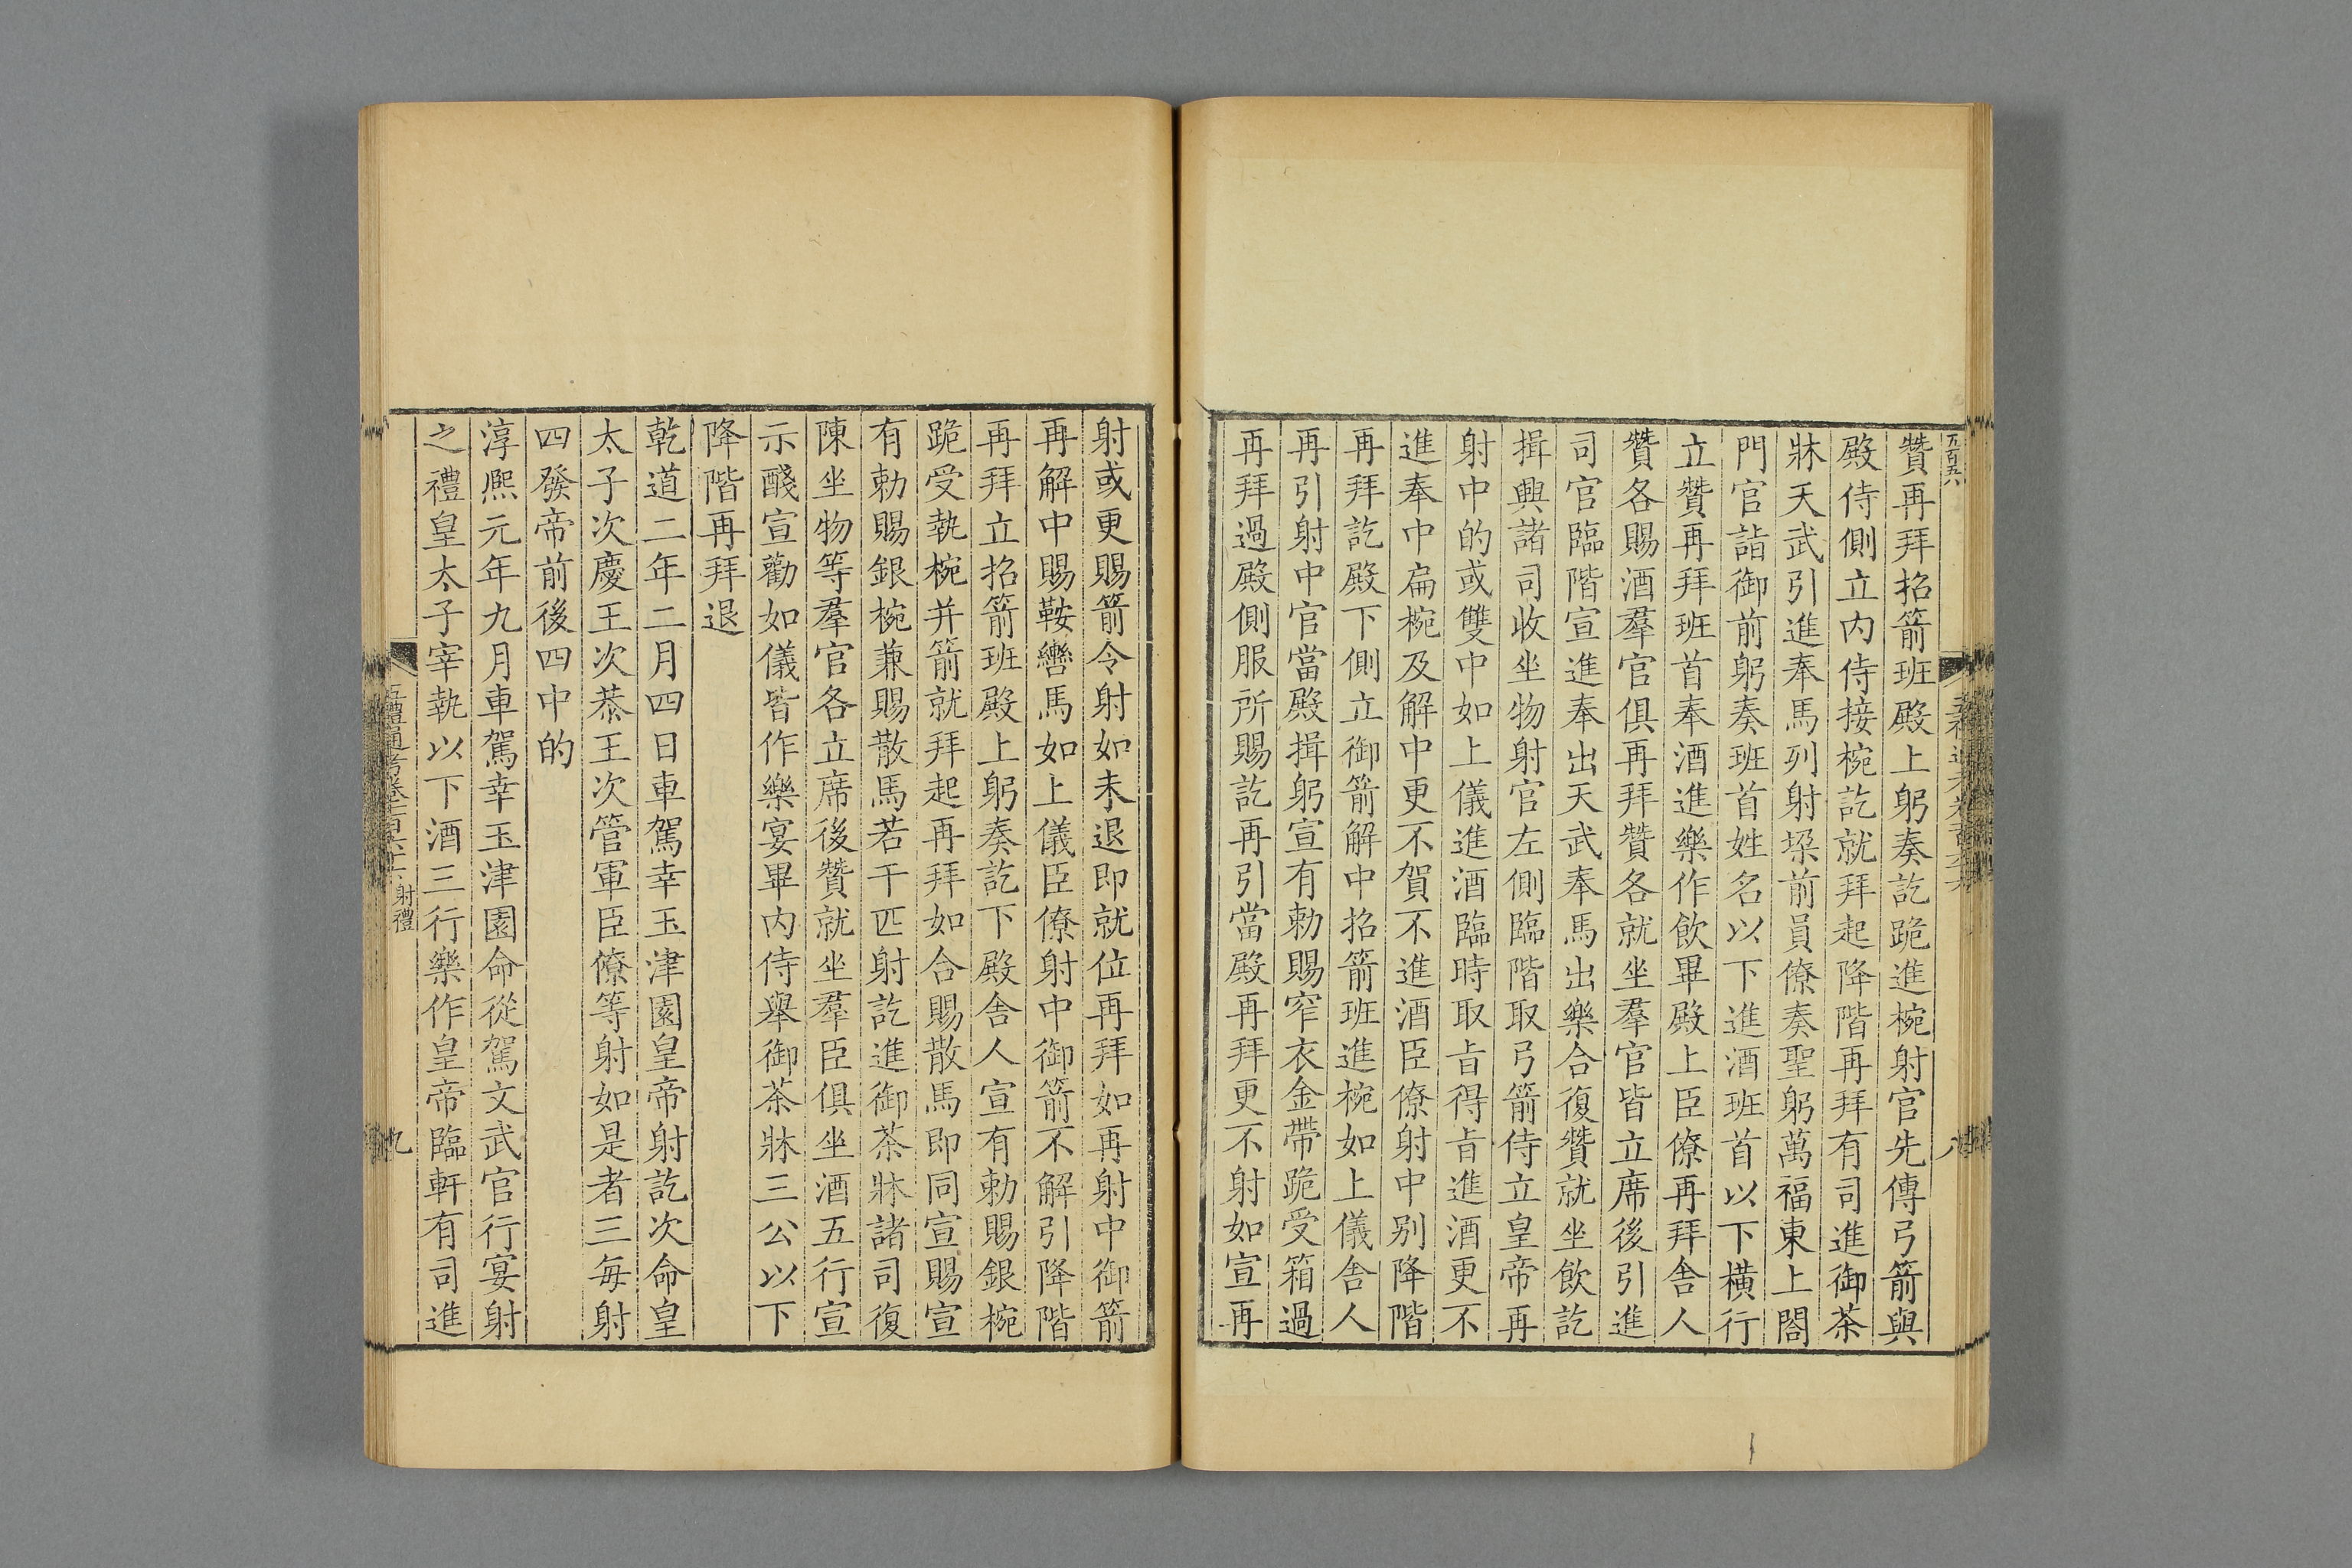 贊再拜招箭班殿上躬奏訖跪進椀射官先傳弓箭與
殿侍側立内侍接椀訖就拜起降階再拜有司進御茶
牀天武引進奉馬列射垜前員僚奏聖躬萬福東上閤
門官詣御前躬奏班首姓名以下進酒班首以下橫行
立贊再拜班首奉酒進樂作飲畢殿上臣僚再拜舍人
贊各賜酒羣官俱再拜贊各就坐羣官皆立席後引進
司官臨階宣進奉出天武奉馬出樂合復贊就坐飲訖
揖興諸司收坐物射官左側臨階取弓箭侍立皇帝再
射中的或雙中如上儀進酒臨時取㫖得㫖進酒更不
進奉中扁椀及解中更不賀不進酒臣僚射中别降階
再拜訖殿下側立御箭解中招箭班進椀如上儀舍人
再引射中官當殿揖躬宣有勅賜窄衣金帶跪受箱過
再拜過殿側服所賜訖再引當殿再拜更不射如宣再
射或更賜箭令射如未退即就位再拜如再射中御箭
再解中賜鞍轡馬如上儀臣僚射中御箭不解引降階
再拜立招箭班殿上躬奏訖下殿舍人宣有勅賜銀椀
跪受執椀并箭就拜起再拜如合賜散馬即同宣賜宣
有勅賜銀椀兼賜散馬若干匹射訖進御茶牀諸司復
陳坐物等羣官各立席後贊就坐羣臣俱坐酒五行宣
示醆宣勸如儀皆作樂宴畢内侍舉御茶牀三公以下
降階再拜退
乾道二年二月四日車駕幸玉津園皇帝射訖次命皇
太子次慶王次恭王次管軍臣僚等射如是者三每射
四發帝前後四中的
淳熙元年九月車駕幸玉津園命從駕文武官行宴射
之禮皇太子宰執以下酒三行樂作皇帝臨軒有司進
射禮
九